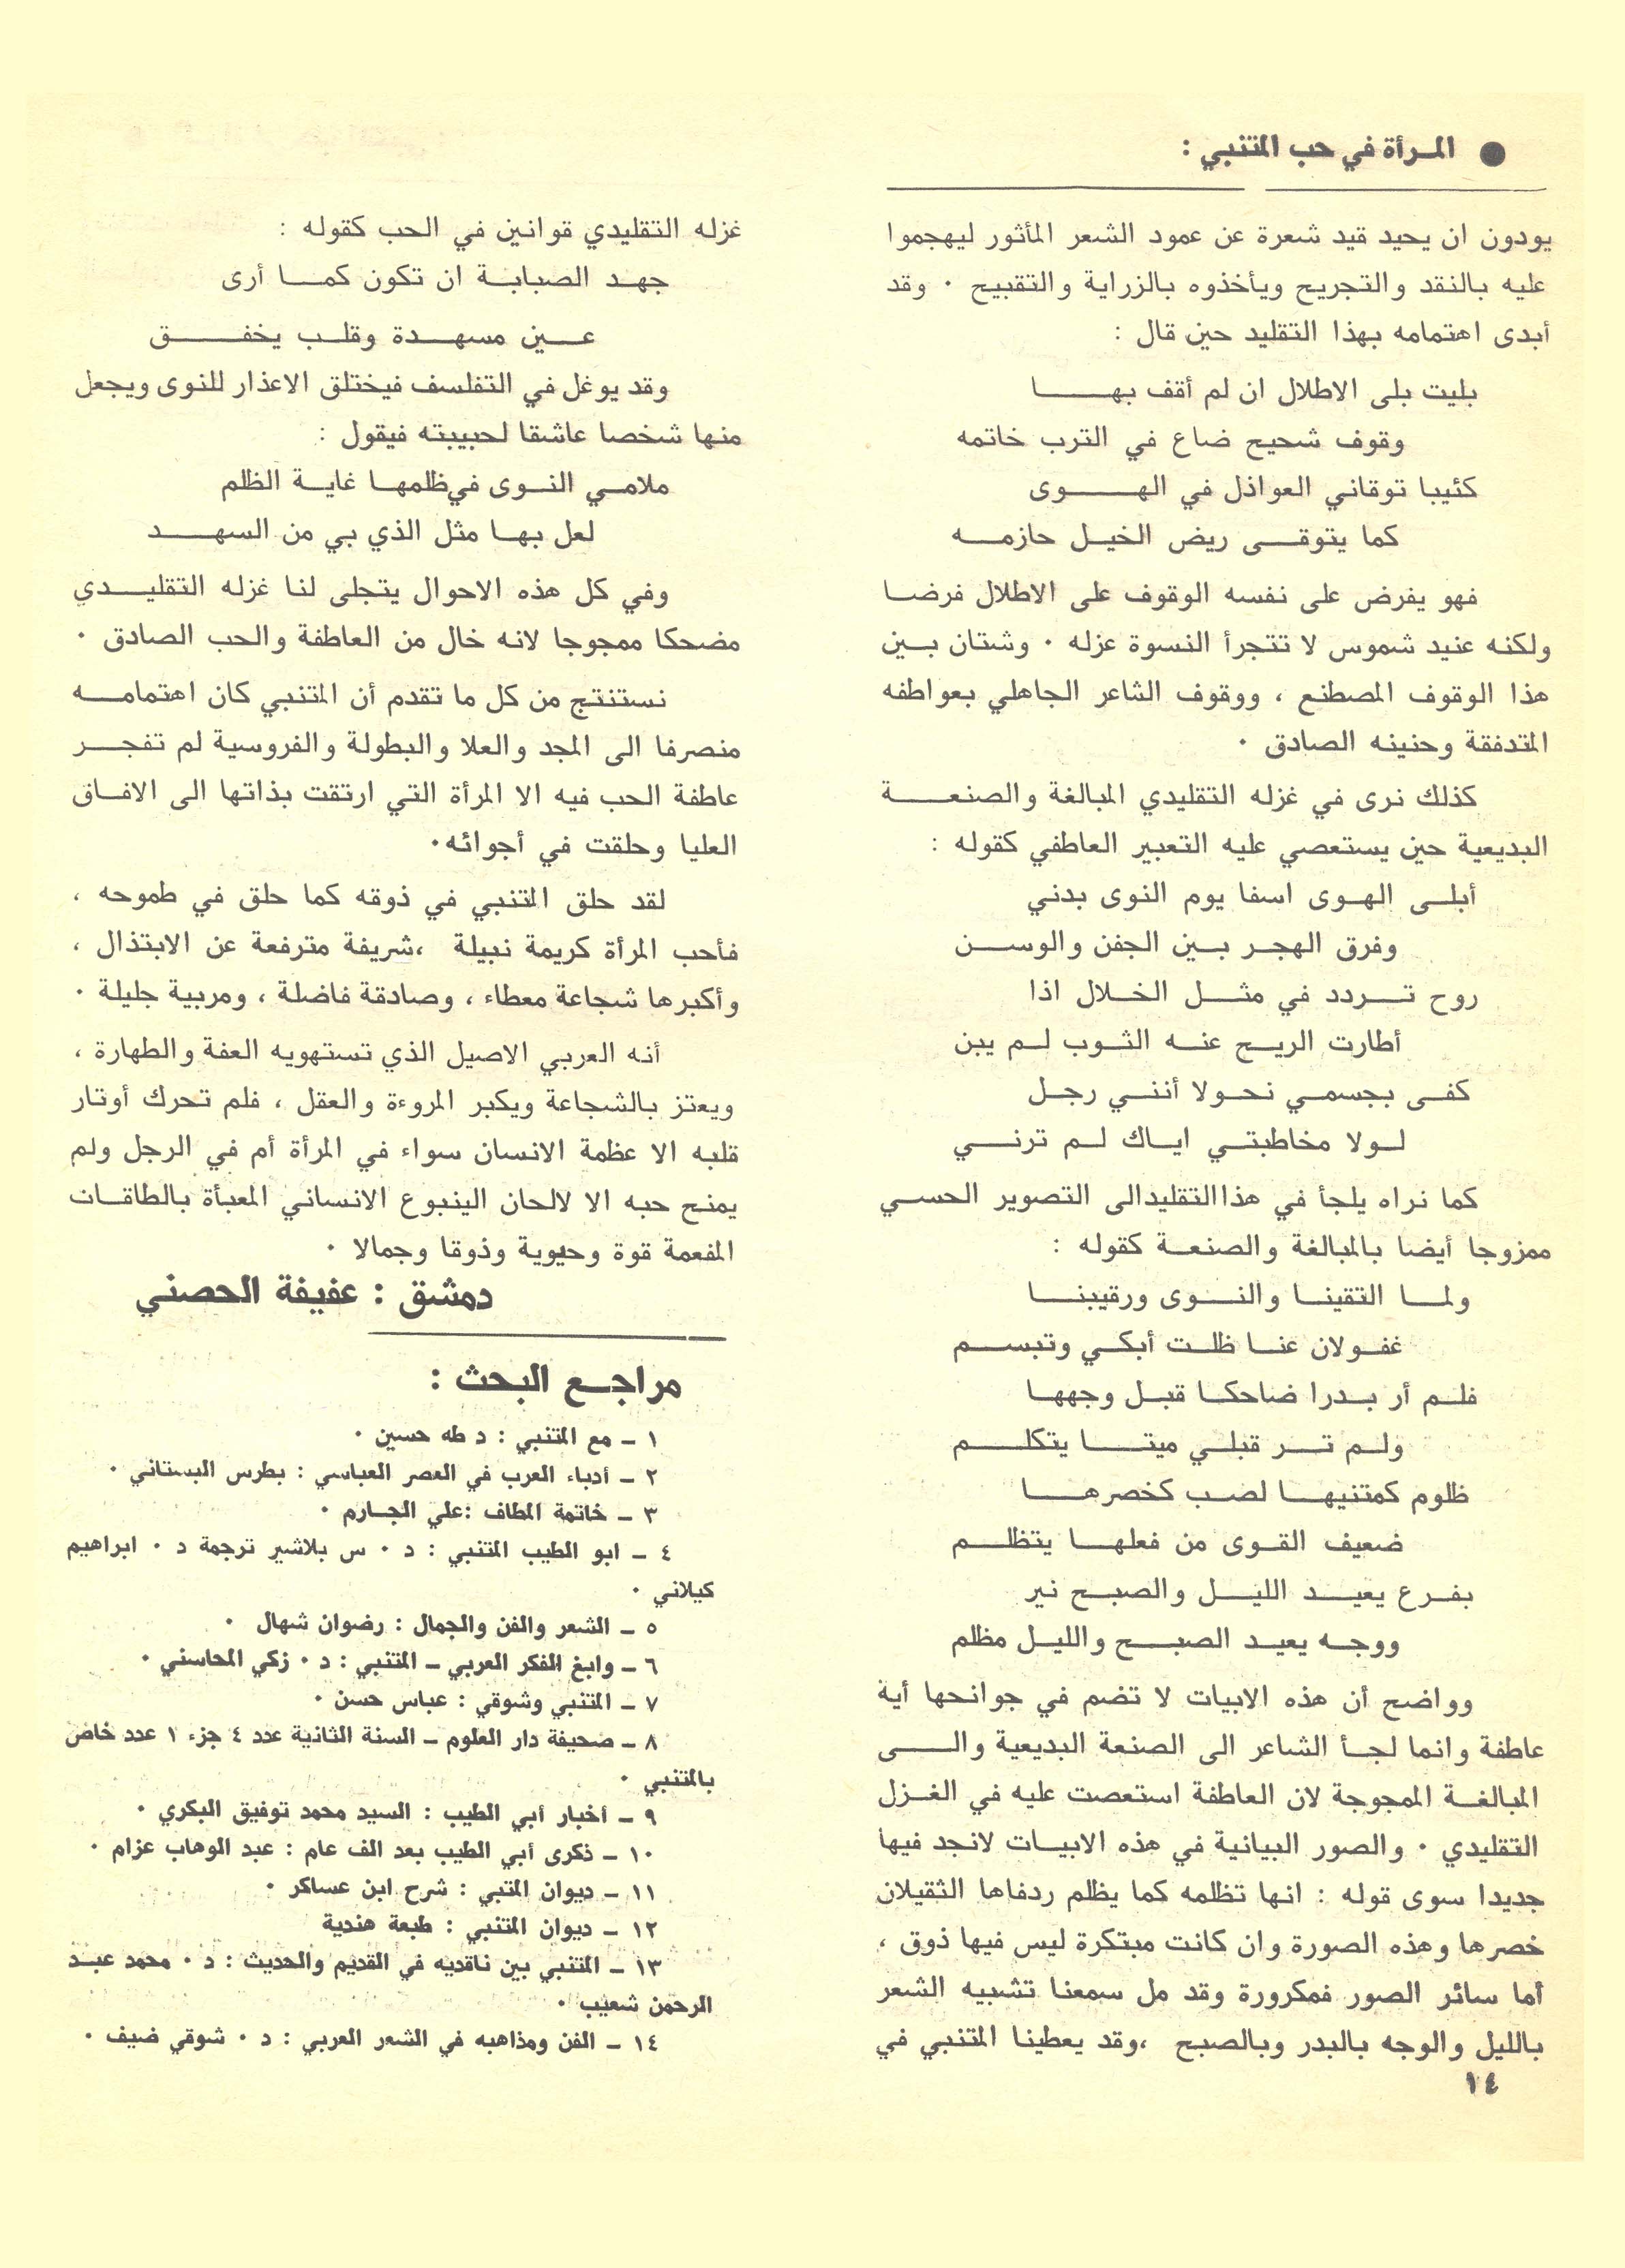 ● المرأة في حب المتنبي :
يودون ان يحيد قيد شعرة عن عمود الشعر المأثور ليهجموا
عليه بالنقد والتجريح ويأخذوه بالزراية والتقبيح ٠ وقد
أبدى اهتمامه بهذا التقليد حين قال :
بليت بلى الاطلال ان لم أقف بها
وقوف شحيح ضاع في الترب خاتمه
كئيبا توقاني العواذل في الهوى
كما يتوقى ريض الخيل حازمه
فهو يفرض على نفسه الوقوف على الاطلال فرضا
ولكنه عنيد شموس لا تتجرأ النسوة عزله ٠ وشتان بين
هذا الوقوف المصطنع ، ووقوف الشاعر الجاهلي بعواطفه
المتدفقة وحنينه الصادق ٠
كذلك نرى في غزله التقليدي المبالغة والصنعة
البديعية حين يستعصي عليه التعبير العاطفي كقوله :
أبلى الهوى اسفا يوم النوى بدني
وفرق الهجر بين الجفن والوسن
روح تردد في مثل الخلال اذا
أطارت الريح عنه الثوب لم يبن
كفى بجسمي نحولا أنني رجل
لولا مخاطبتي اياك لم ترني
كما نراه يلجأ في هذا التقليد الى التصوير الحسي
ممزوجا أيضا بالمبالغة والصنعة كقوله :
ولما التقينا والنوى ورقيبنا
غفولان عنا ظلت أبكي وتبسم
فلم أر بدرا ضاحكا قبل وجهها
ولم تر قبلي ميتا يتكلم
ظلوم كمتنيها لصب كخصرها
ضعيف القوى من فعلها يتظلم
بفرع يعيد الليل والصبح نير
ووجه يعيد الصبح والليل مظلم
وواضح أن هذه الابيات لا تضم في جوانحها أية
عاطفة وانما لجأ الشاعر الى الصنعة البديعية والى
المبالغة الممجوجة لان العاطفة استعصت عليه في الغزل
التقليدي ٠ والصور البيانية في هذه الابيات لانجد فيها
جديدا سوى قوله : انها تظلمه كما يظلم ردفاها الثقيلان
خصرها وهذه الصورة وان كانت مبتكرة ليس فيها ذوق ،
أما سائر الصور فمكرورة وقد مل سمعنا تشبيه الشعر
بالليل والوجه بالبدر وبالصبح ،وقد يعطينا المتنبي في
١٤
غزله التقليدي قوانين في الحب كقوله :
جهد الصبابة ان تكون كما أرى
عين مسهدة وقلب يخفق
وقد يوغل في التفلسف فيختلق الاعذار للنوى ويجعل
منها شخصا عاشقا لحبيبته فيقول :
ملامي النوى في ظلمها غاية الظلم
لعل بها مثل الذي بي من السهد
وفي كل هذه الاحوال يتجلى لنا غزله التقليدي
مضحكا ممجوجا لانه خال من العاطفة والحب الصادق ٠
نستنتج من كل ما تقدم أن المتنبي كان اهتمامه
منصرفا الى المجد والعلا والبطولة والفروسية لم تفجر
عاطفة الحب فيه الا المرأة التي ارتقت بذاتها الى الافاق
العليا وحلقت في أجوائه٠
لقد حلق المتنبي في ذوقه كما حلق في طموحه ،
فأحب المرأة كريمة نبيلة ،شريفة مترفعة عن الابتذال ،
وأكبرها شجاعة معطاء ، وصادقة فاضلة ، ومربية جليلة ٠
أنه العربي الاصيل الذي تستهويه العفة والطهارة ،
ويعتز بالشجاعة ويكبر المروءة والعقل ، فلم تحرك أوتار
قلبه الا عظمة الانسان سواء في المرأة أم في الرجل ولم
يمنح حبه الا لالحان الينبوع الانساني المعبأة بالطاقات
المفعمة قوة وحيوية وذوقا وجمالا ٠
دمشق : عفيفة الحصني
مراجع البحث :
١ – مع المتنبي : د طه حسين ٠
٢ – أدباء العرب في العصر العباسي : بطرس البستاني ٠
٣ – خاتمة المطاف :علي الجارم ٠
٤ – ابو الطيب المتنبي : د ٠ س بلاشير ترجمة د ٠ ابراهيم
كيلاني ٠
٥ – الشعر والفن والجمال : رضوان شهال ٠
٦ – وابغ الفكر العربي – المتنبي : د ٠ زكي المحاسني ٠
٧ – المتنبي وشوقي : عباس حسن ٠
٨ – صحيفة دار العلوم – السنة الثانية عدد ٤ جزء ١ عدد خاص
بالمتنبي ٠
٩ – أخبار أبي الطيب : السيد محمد توفيق البكري ٠
١٠ – ذكرى أبي الطيب بعد الف عام : عبد الوهاب عزام ٠
١١ – ديوان المتبي : شرح ابن عساكر ٠
١٢ – ديوان المتنبي : طبعة هندية
١٣ – المتنبي بين ناقديه في القديم والحديث : د ٠ محمد عبد
الرحمن شعيب ٠
١٤ – الفن ومذاهبه في الشعر العربي : د ٠ شوقي ضيف ٠